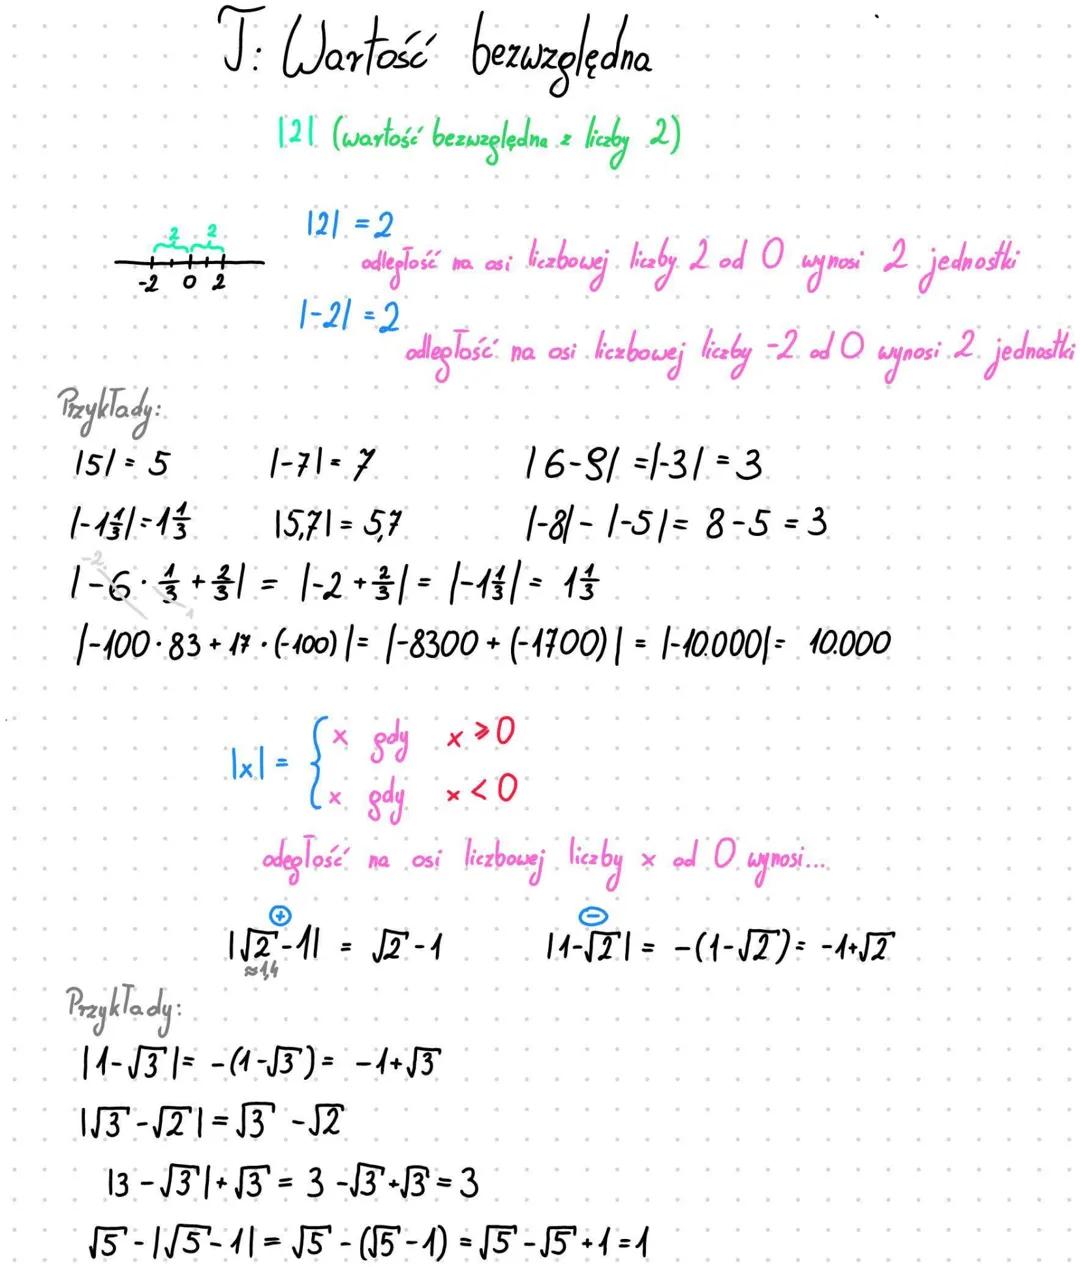 T: Wartość bezwzględna
|2| (wartość bezwzględna z liczby 2)
2 2
-2 0 2
|2| = 2
odległość na osi liczbowej liczby 2 od 0 wynosi 2 jednostki
|-2| = 2
odległość na osi liczbowej liczby -2 od 0 wynosi 2 jednostki
Przykłady:
|5| = 5 |-7| = 7 |6-9| = |-3| = 3
|-1 1/3| = 1 1/3 |5,7| = 5,7 |-8| - |-5| = 8-5 = 3
-2
|-6 · 1/3 + 2/3| = |-2 + 2/3| = |-1 1/3| = 1 1/3
1
|-100·83 + 17·(-100)| = |-8300 + (-1700)| = |-10.000| = 10.000
|x| = { x gdy x ≥ 0
x gdy x < 0
odegłość na osi liczbowej liczby x od 0 wynosi...
+ -
|√2-1| = √2-1 |1-√2| = -(1-√2) = -1+√2
≈1,4
Przykłady:
|1-√3| = -(1-√3) = -1+√3
|√3-√2| = √3 - √2
|3-√3| + √3 = 3 - √3 + √3 = 3
√5 - |√5-1| = √5 - (√5-1) = √5 - √5 + 1 = 1